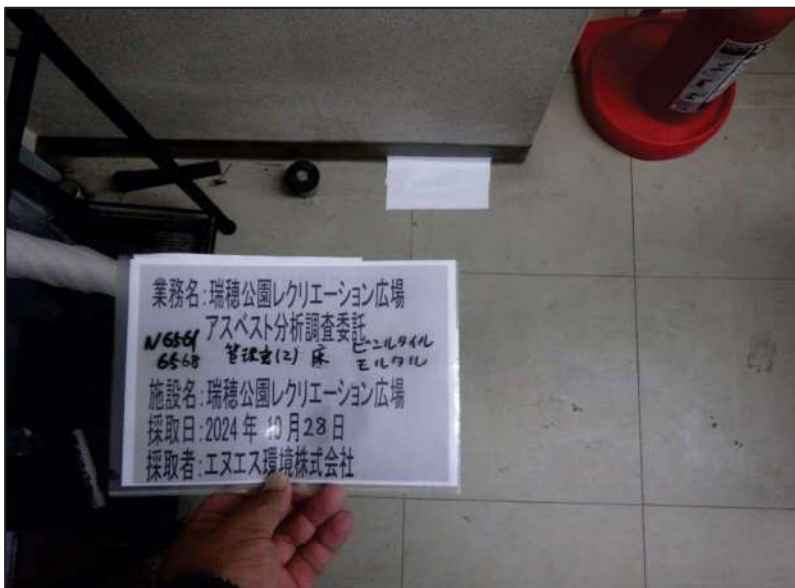 業務名:瑞穂公園レクリエーション広場
アスベスト分析調査委託
N6561 管理室(2) 床 ビニルタイル
6568 モルタル
施設名:瑞穂公園レクリエーション広場
採取日:2024年10月28日
採取者:エヌエス環境株式会社